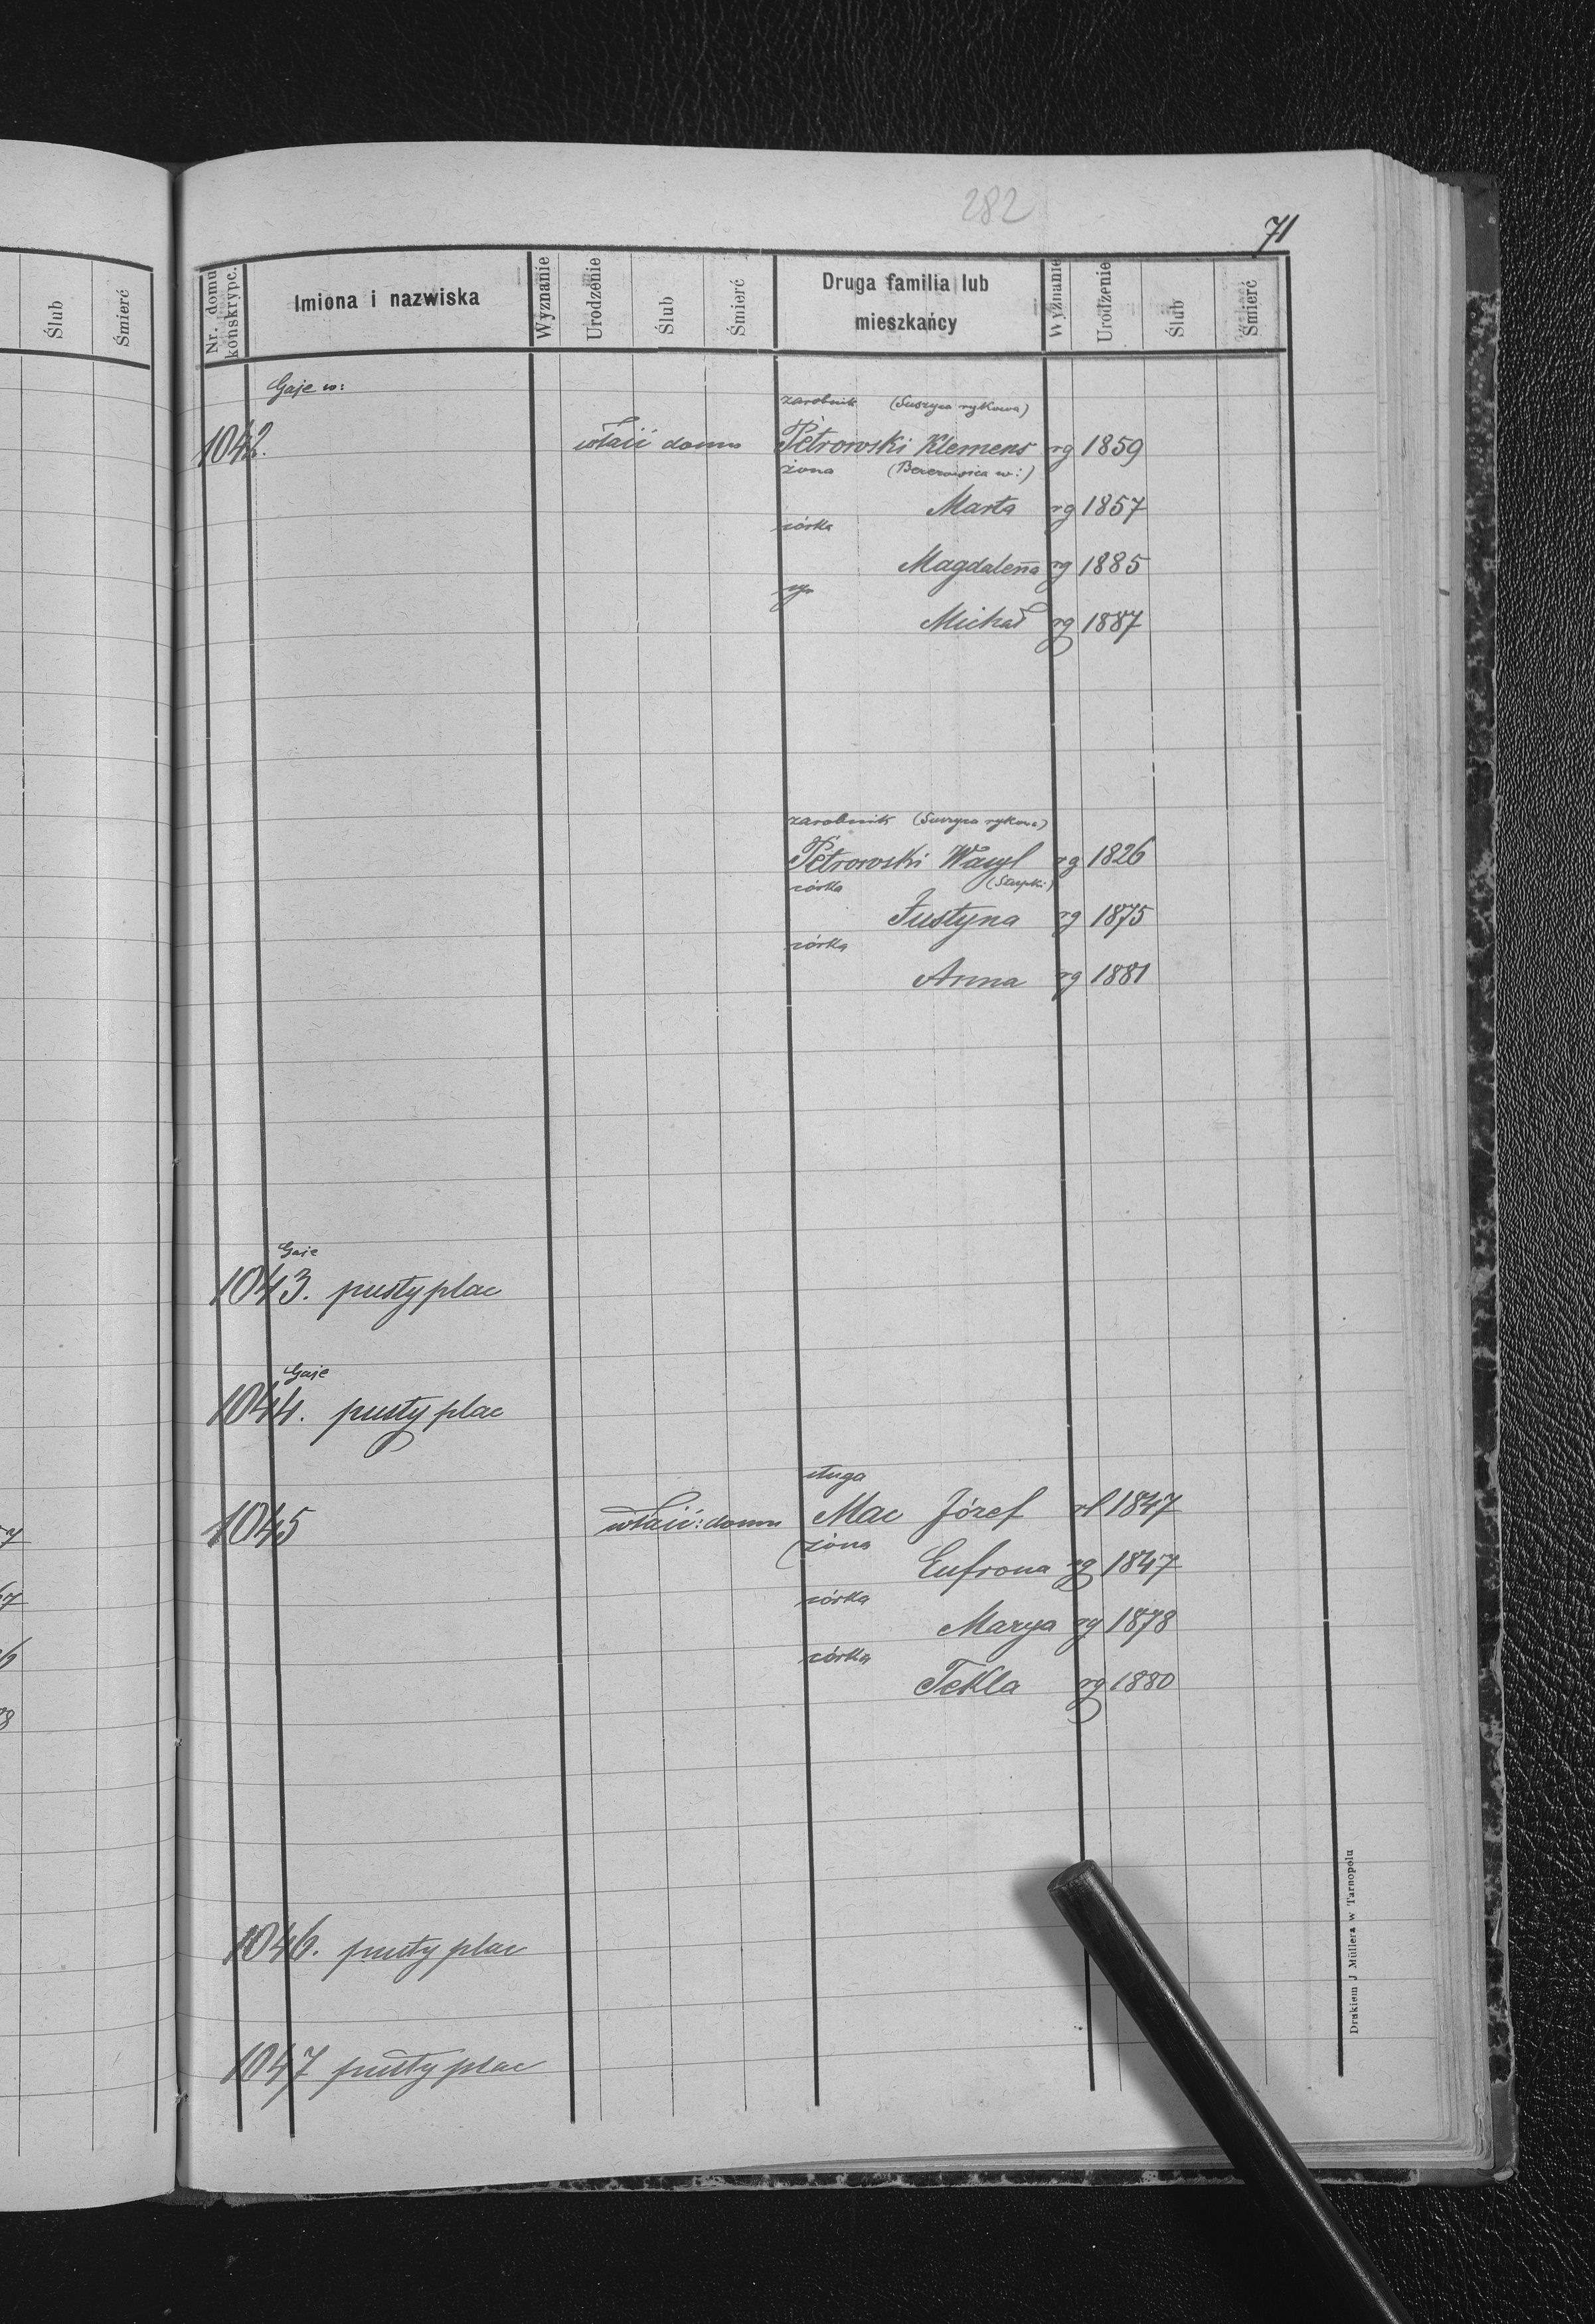 282
71
Ślub Śmierć
Nr. domu konskrypc. Imiona i nazwiska Wyznanie Urodzenie Ślub Śmierć Druga familia lub mieszkańcy Wyznanie Urodzenie Ślub Śmierć
Gaje w:
zarobnik (Suszyca rykowa)
1042. właść domu Petrowski Klemens rg 1859
żona (Berezowica w:)
Marta rg 1857
córka
Magdalena rg 1885
syn
Michał rg 1887
zarobnik (Suszyca rykowa)
Petrowski Wasyl rg 1826
córka (Stupki)
Justyna rg 1875
córka
Anna rg 1881
Gaje
1043. pusty plac
Gaje
1044. pusty plac
sługa
1045 właść: domu Mac Józef rł 1847
żona
Eufrona rg 1847
córka
Marya rg 1878
córka
Tekla rg 1880
1046. pusty plac
1047 pusty plac
Drukiem J Müllera w Tarnopolu